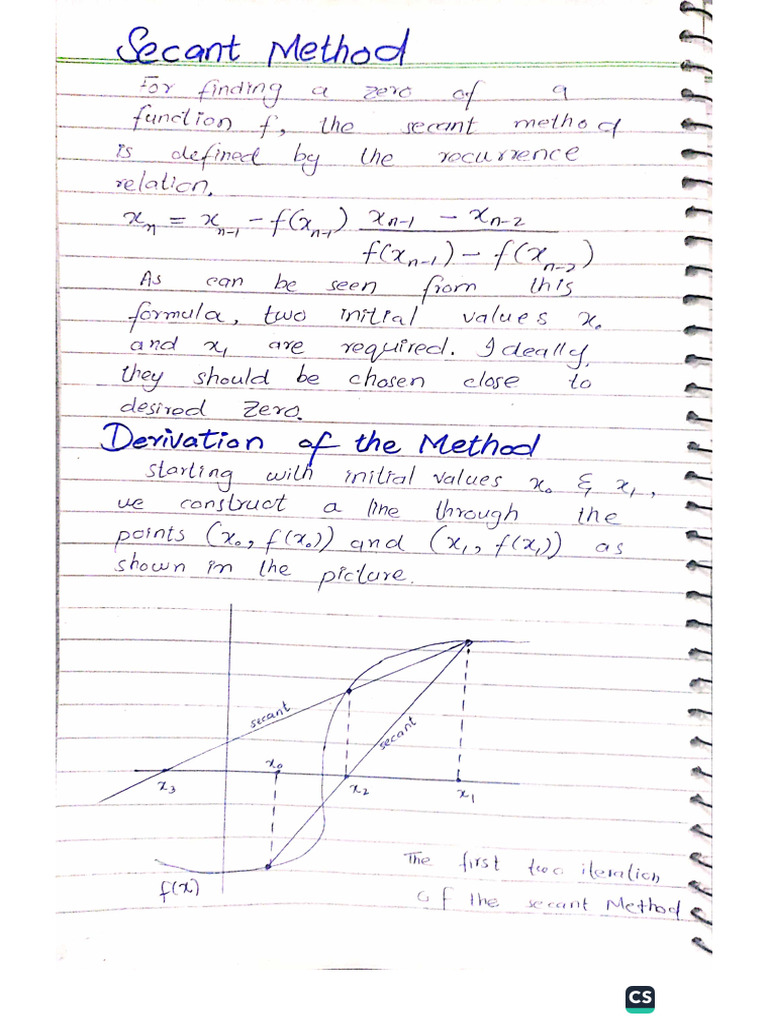 Secant Method
For finding a zero of a
function f, the secant method
is defined by the recurrence
relation,
xₙ = xₙ₋₁ - f(xₙ₋₁) (xₙ₋₁ - xₙ₋₂) / (f(xₙ₋₁) - f(xₙ₋₂))
As can be seen from this
formula, two initial values x₀
and x₁ are required. Ideally,
they should be chosen close to
desired zero.
Derivation of the Method
starting with initial values x₀ & x₁,
we construct a line through the
points (x₀, f(x₀)) and (x₁, f(x₁)) as
shown in the picture.
secant
secant
x₀
x₃
x₂
x₁
f(x)
The first two iteration
of the secant Method
CS